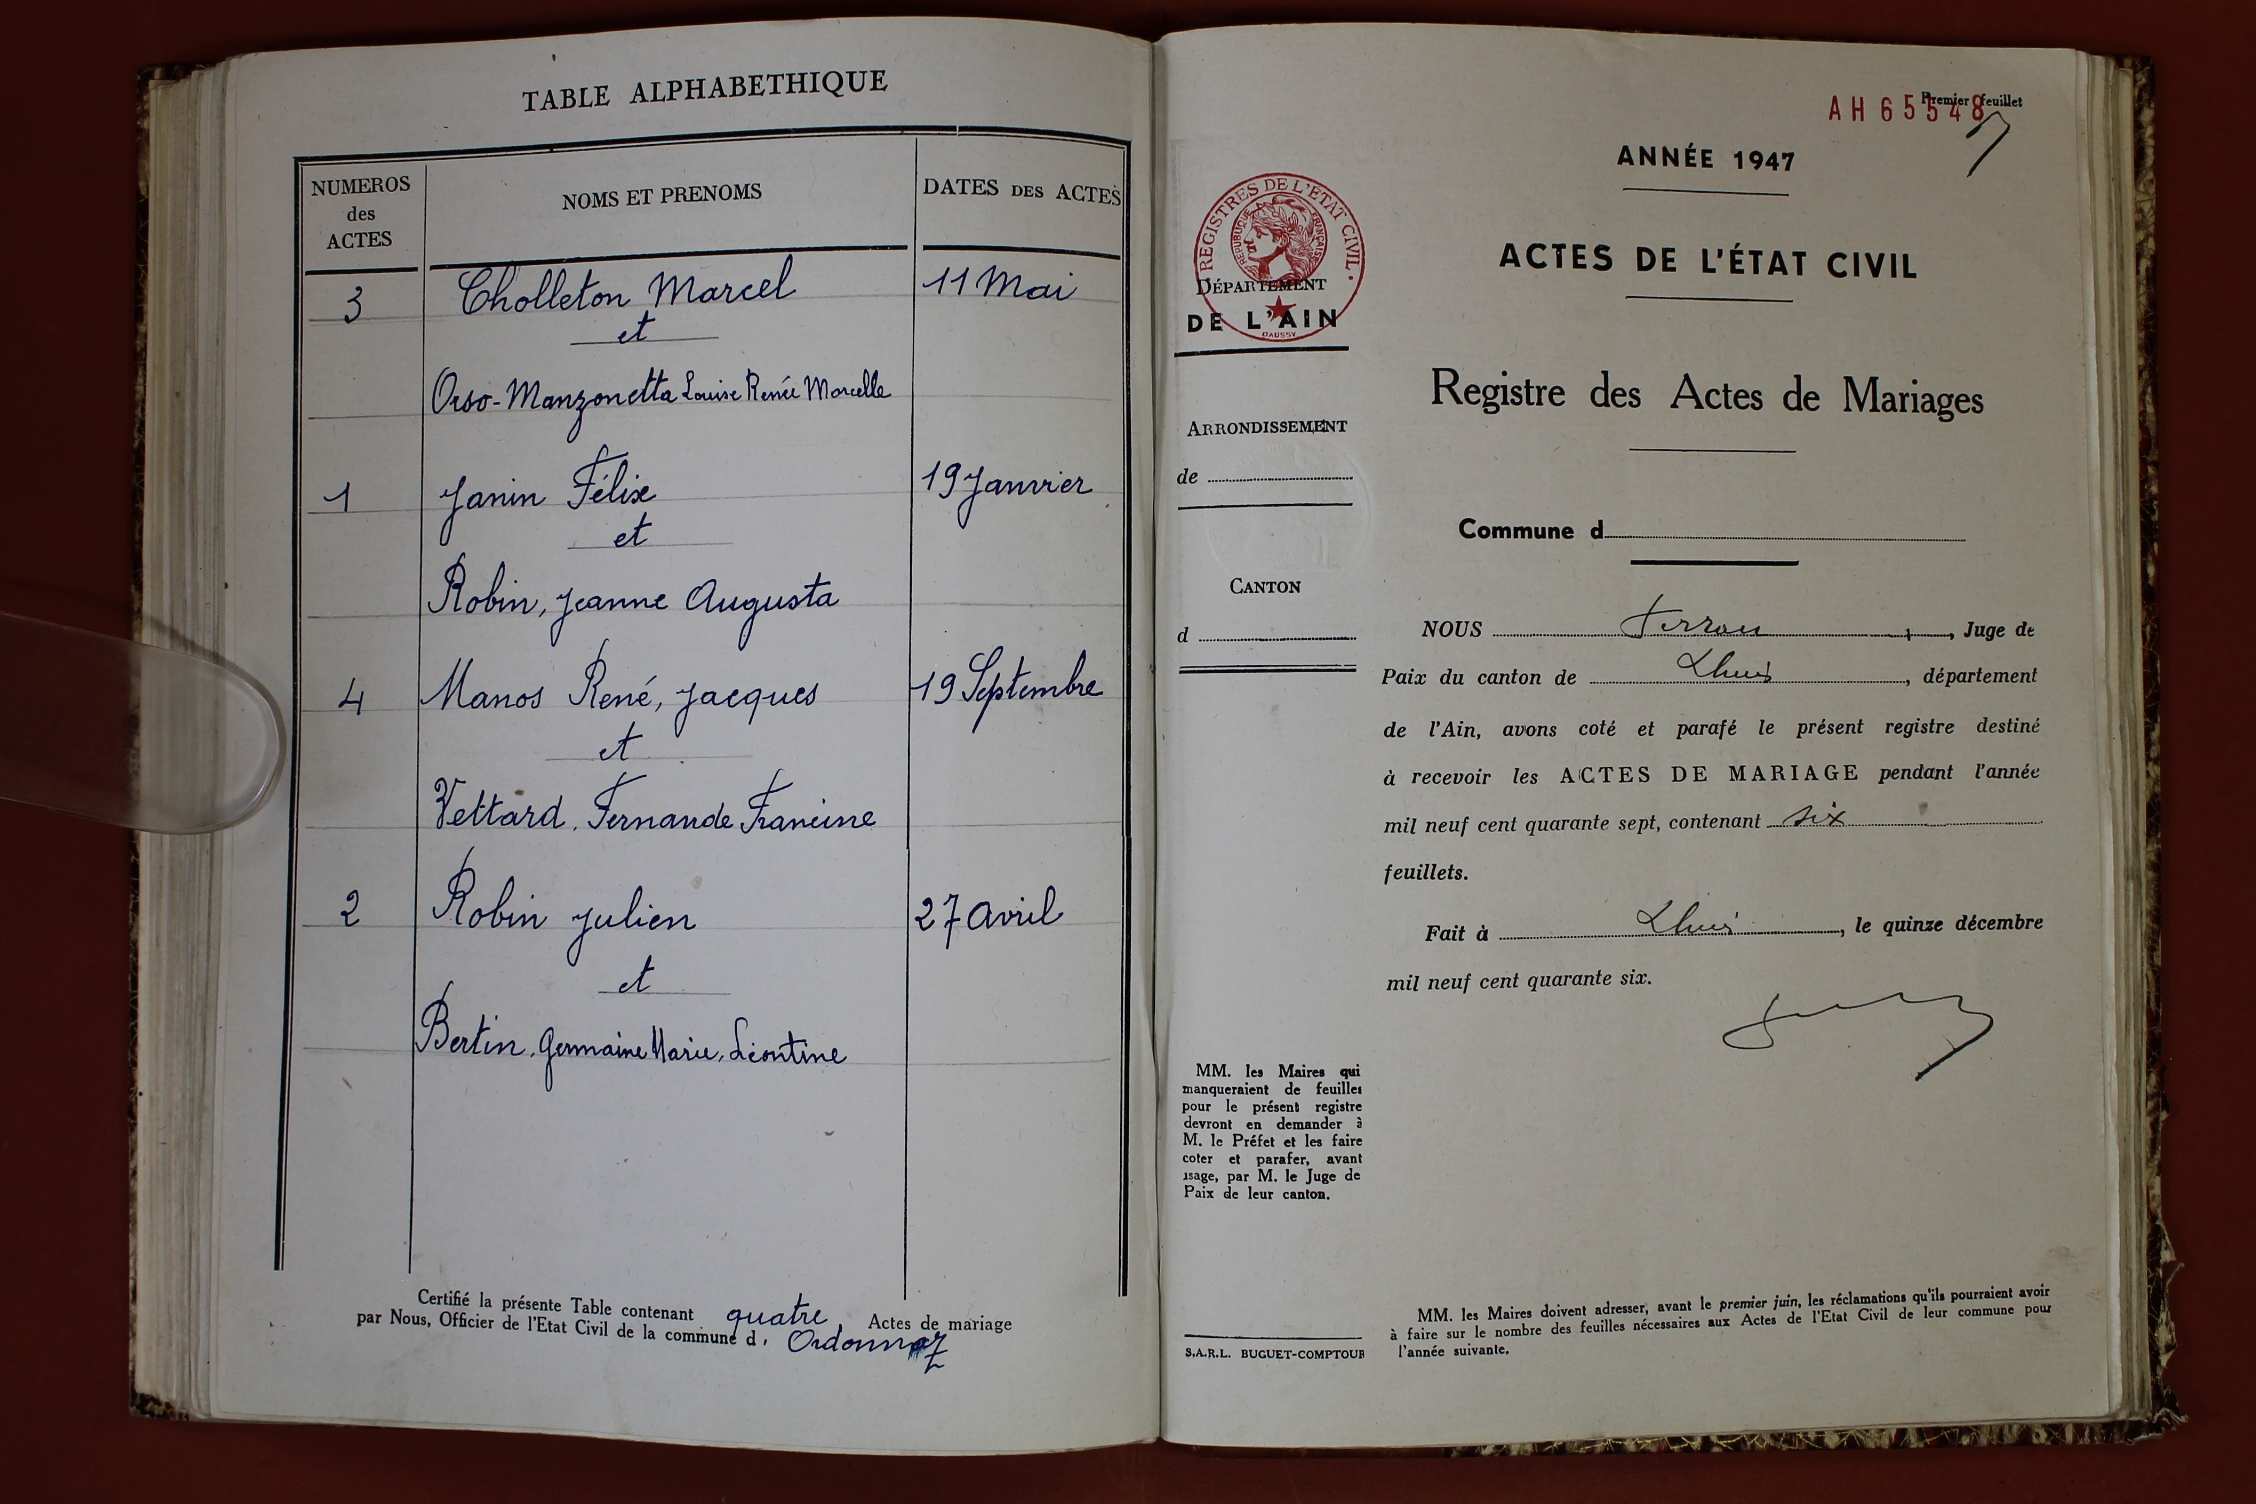 TABLE ALPHABETHIQUE
NUMEROS
des
ACTES
NOMS ET PRENOMS
DATES DES ACTES
3 Cholleton Marcel 11 Mai
et
Orso-Manzonetta Louise Renée Marcelle
1 Janin Félix 19 Janvier
et
Robin, Jeanne Augusta
4 Manos René, Jacques 19 Septembre
et
Vettard, Fernande Francine
2 Robin Julien 27 Avril
et
Bertin, Germaine Marie, Léontine
Certifié la présente Table contenant quatre Actes de mariage
par Nous, Officier de l'Etat Civil de la commune d' Ordonnaz
AH 65548
Premier feuillet
ANNÉE 1947
ACTES DE L'ÉTAT CIVIL
REGISTRES DE L'ÉTAT CIVIL
RÉPUBLIQUE FRANÇAISE
DAUSSY
DÉPARTEMENT
DE L'AIN
ARRONDISSEMENT
de
CANTON
d
Registre des Actes de Mariages
Commune d
NOUS Ferrou, Juge de
Paix du canton de Lhuis, département
de l'Ain, avons coté et parafé le présent registre destiné
à recevoir les ACTES DE MARIAGE pendant l'année
mil neuf cent quarante sept, contenant six
feuillets.
Fait à Lhuis, le quinze décembre
mil neuf cent quarante six.
MM. les Maires qui
manqueraient de feuilles
pour le présent registre
devront en demander à
M. le Préfet et les faire
coter et parafer, avant
usage, par M. le Juge de
Paix de leur canton.
S.A.R.L. BUGUET-COMPTOUR
MM. les Maires doivent adresser, avant le premier juin, les réclamations qu'ils pourraient avoir
à faire sur le nombre des feuilles nécessaires aux Actes de l'Etat Civil de leur commune pour
l'année suivante.